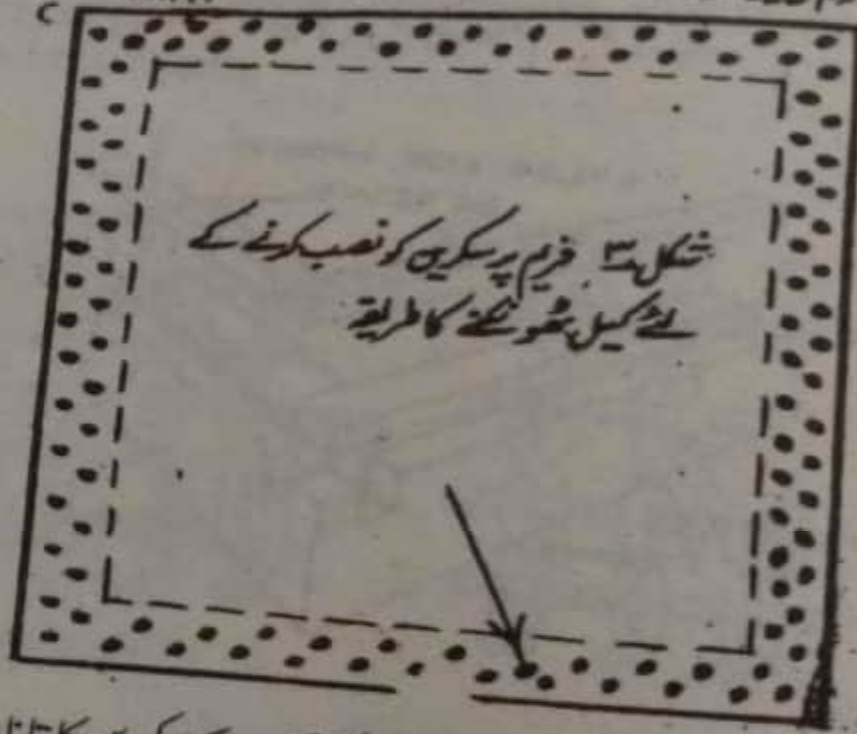 C
شکل ۳ فریم پر سکرین کو نصب کرنے کے
لئے کیل ٹھونکنے کا طریقہ